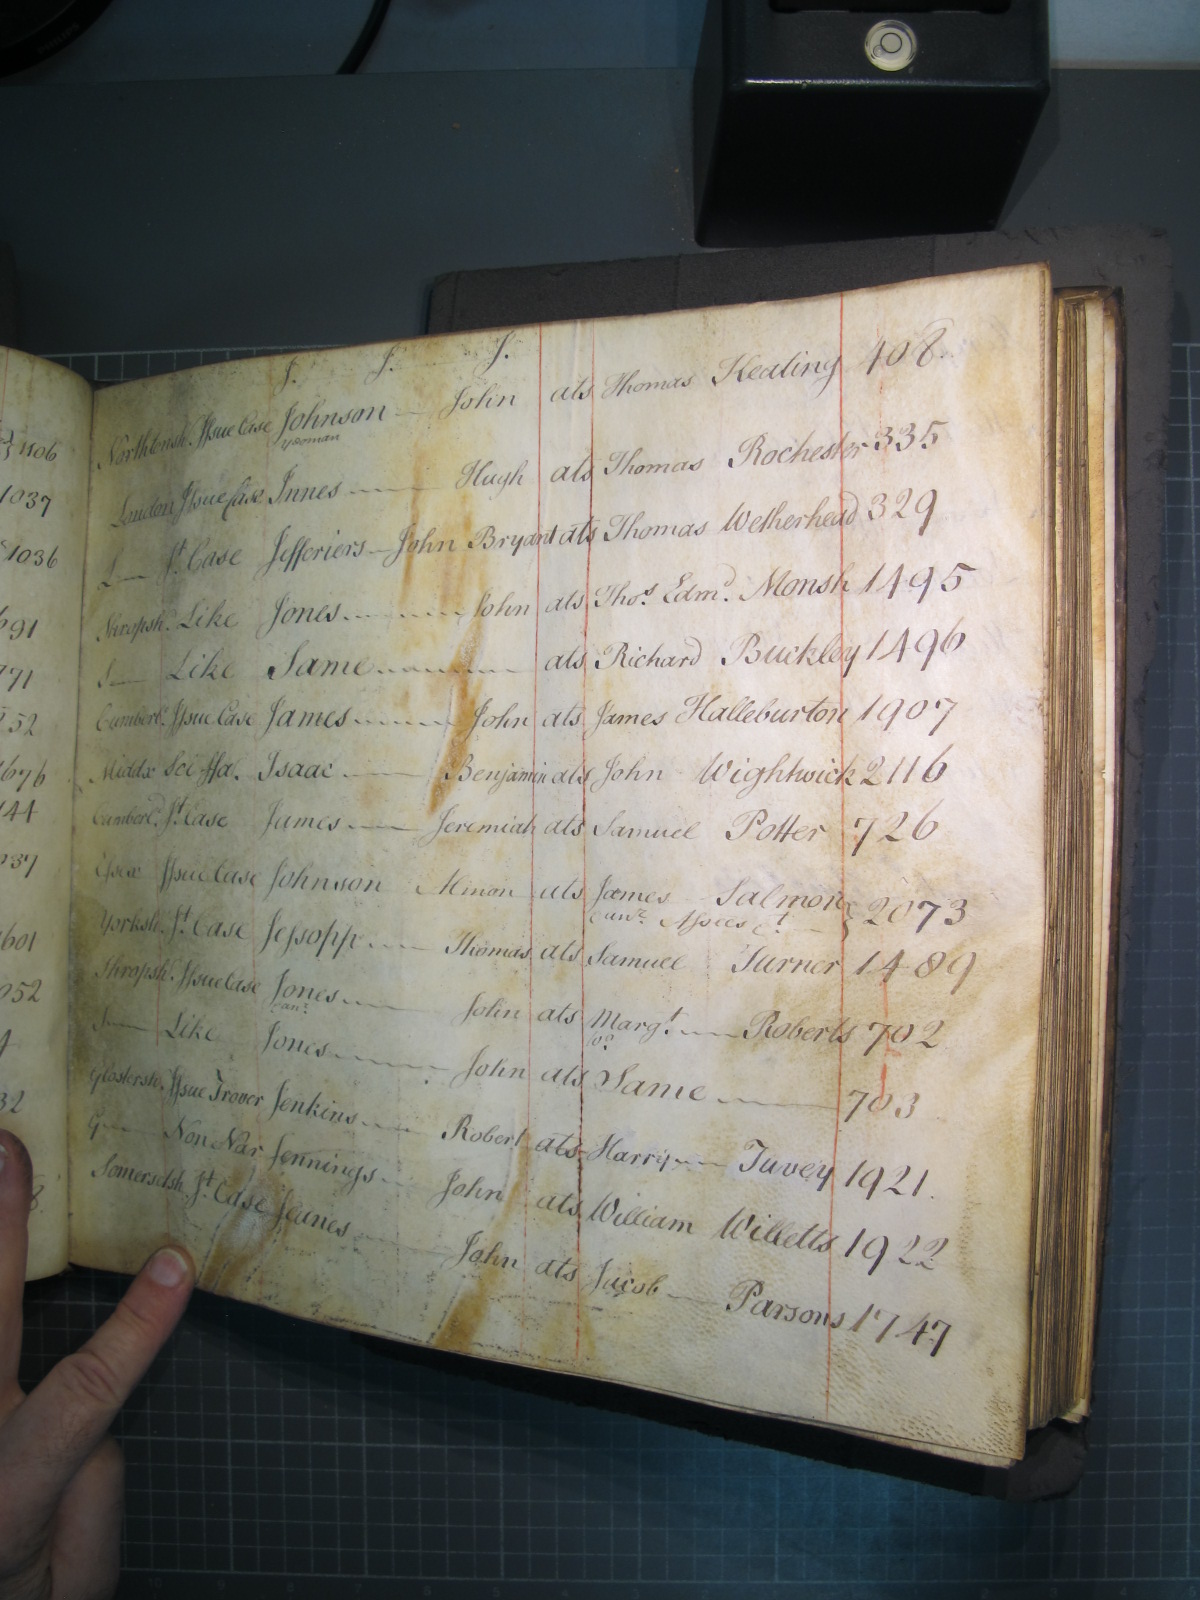 J. J. J.
Northtonsh. Issue Case Johnson John ats Thomas Keating 408
yeoman
London Issue Case Innes Hugh ats Thomas Rochester 335
L Jt. Case Jefferiers John Bryant ats Thomas Wetherhead 329
Shropsh. Like Jones John ats Thos. Edmd. Monsh 1495
S Like Same ats Richard Buckley 1496
Cumberld. Issue Case James John ats James Halleburton 1907
Middx Sci Ffa. Isaac Benjamin ats John Wightwick 2116
Cumberl. Jt. Case James Jeremiah ats Samuel Potter 726
Essex Issue Case Johnson ats James Salmon 2073
Yorksh. Jt. Case Jessopp Thomas ats Samuel Turner 1489
Shropsh. Issue Case Jones John ats Margt. Roberts 702
S Like Jones John ats Same 703
Glostersh. Issue Trover Jenkins Robert ats Harry Tuvey 1921.
G Non Nar Jennings John ats William Willetts 1922
Somersetsh. Jt. Case Jeanes John ats Jacob Parsons 1747
1106
1037
1036
691
771
1676
144
937
1601
1052
32